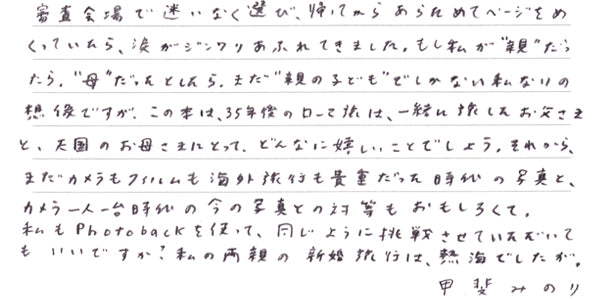 審査会場で迷いなく選び、帰ってからあらためてページをめ
くっていたら、涙がジンワリあふれてきました。もし私が"親"だっ
たら。"母"だったとしたら。まだ"親の子ども"でしかない私なりの
想像ですが、この本は、35年後のローマ旅は、一緒に旅したお父さま
と、天国のお母さまにとって、どんなに嬉しいことでしょう。それから、
まだカメラもフィルムも海外旅行も貴重だった時代の写真と、
カメラ一人一台時代の今の写真との対等もおもしろくて。
私もPhotobackを使って、同じように挑戦させていただいて
もいいですか?私の両親の新婚旅行は、熱海でしたが。
甲斐みのり